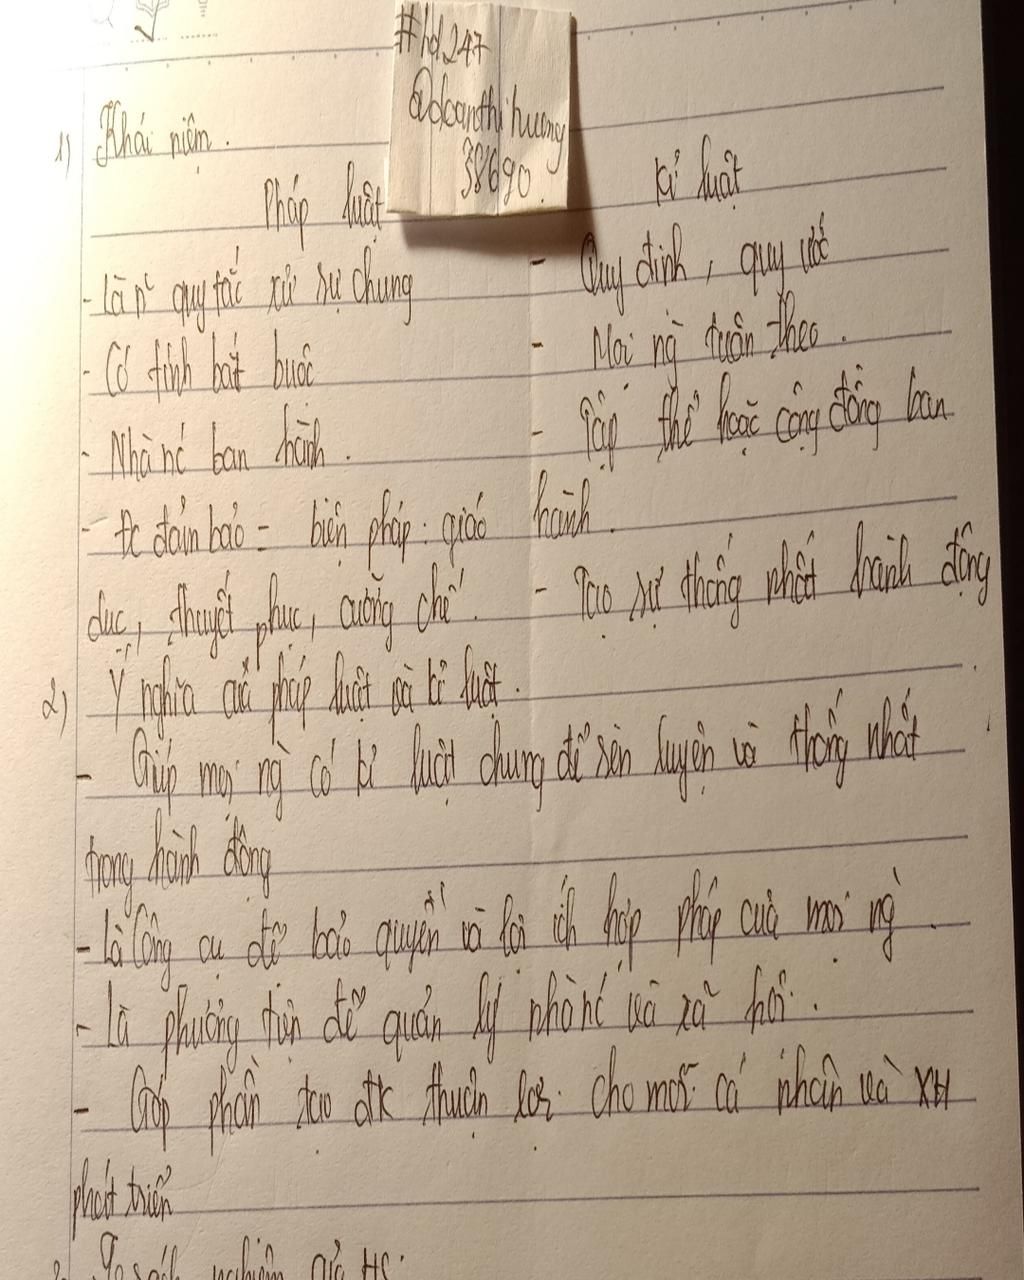 #Hd247
@doanthihuong
38690.
1) Khái niệm.
Pháp luật
kỉ luật
- Là n~ quy tắc xử sự chung
- Quy định, quy ước
- Có tính bắt buộc
- Mọi ng` tuân theo.
- Nhà nc' ban hành.
- Tập thể hoặc cộng đồng ban
- đc đảm bảo = biện pháp: giáo
hành.
dục, thuyết phục, cưỡng chế.
- Tạo sự thống nhất hành động
2) Ý nghĩa của pháp luật và kỉ luật.
- Giúp mọi ng` có kỉ luật chung để rèn luyện và thống nhất
trong hành động
- Là công cụ để bảo quyền và lợi ích hợp pháp của mọi ng`.
- Là phương tiện để quản lý nhà nc' và xã hội.
- Góp phần tạo đk thuận lợi cho mỗi cá nhân và XH
phát triển
nghiệm của HS: